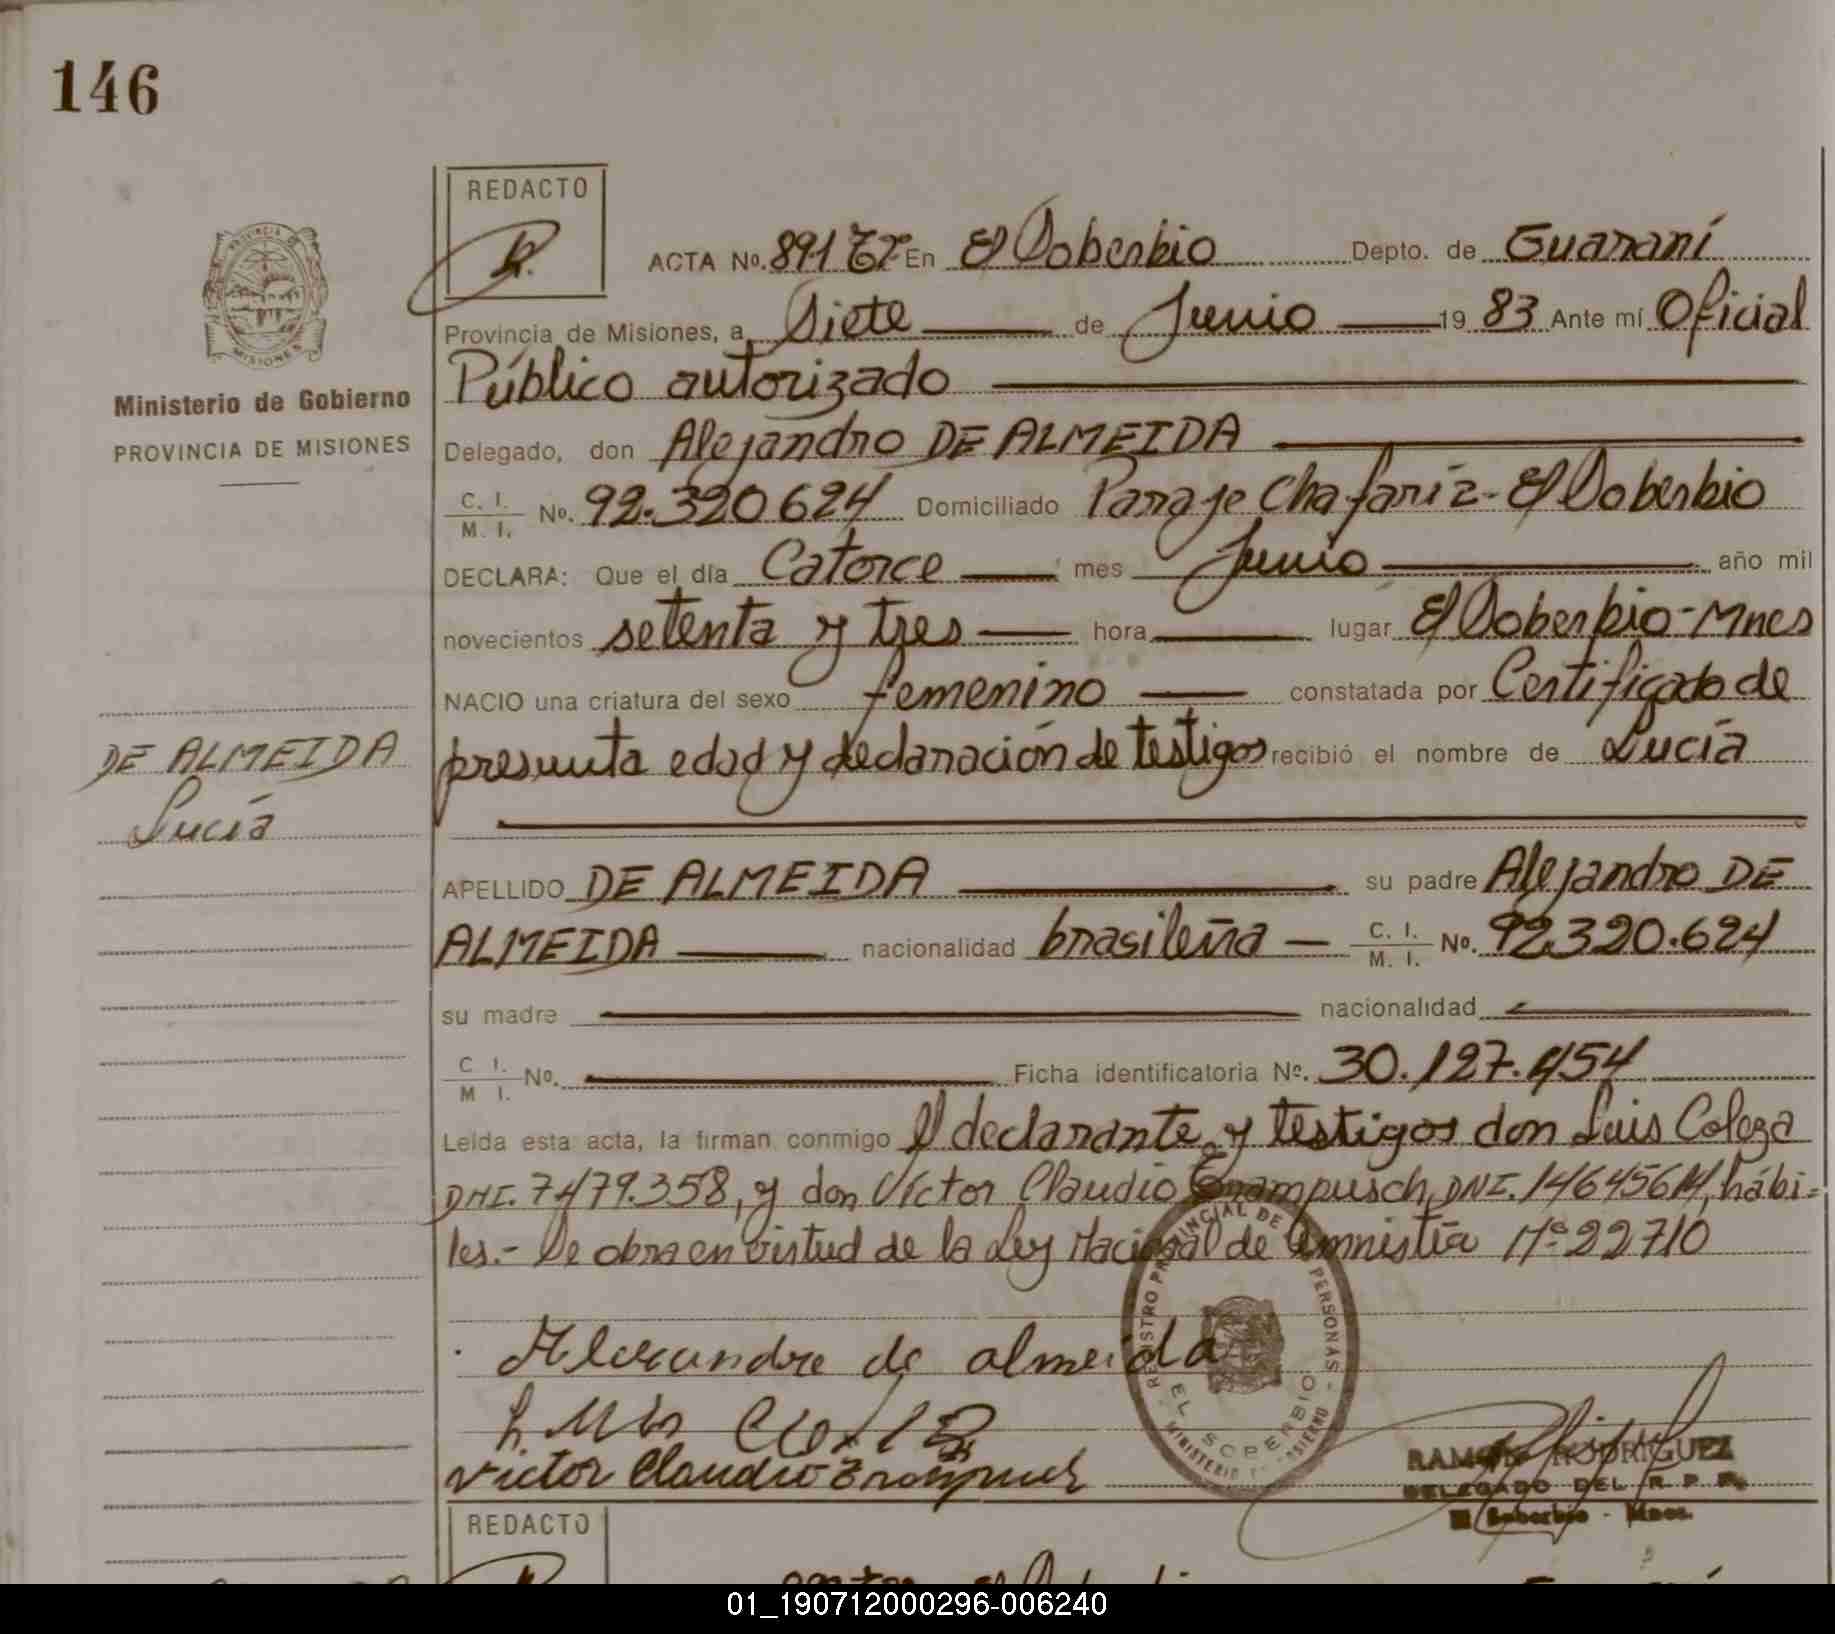 146
REDACTO
ACTA No. 891 En El Soberbio Depto. de Guaraní
PROVINCIA DE
MISIONES
Provincia de Misiones, a Siete de Junio 19 83 Ante mí Oficial
Público autorizado
Ministerio de Gobierno
PROVINCIA DE MISIONES
Delegado, don Alejandro DE ALMEIDA
C. I.
M. I. No. 92.320624 Domiciliado Paraje Chafariz - El Soberbio
DECLARA: Que el día Catorce mes Junio año mil
novecientos setenta y tres hora lugar El Soberbio - Mnes
NACIO una criatura del sexo femenino constatada por Certificado de
presunta edad y declaración de testigos recibió el nombre de Lucía
DE ALMEIDA
Lucía
APELLIDO DE ALMEIDA su padre Alejandro DE
ALMEIDA nacionalidad brasileña C. I.
M. I. No. 92.320.624
su madre nacionalidad
C. I.
M. I. No. Ficha identificatoria No. 30.127.454
Leída esta acta, la firman conmigo el declarante y testigos don Luis
DNI. 7479.358, y don Víctor Claudio DNI. hábi=
les.- Se obra en virtud de la Ley Nacional de Amnistía Nº 22710
Alexandre de almeida
Victor Claudio
REGISTRO PROVINCIAL DE PERSONAS
EL SOBERBIO
MINISTERIO DE GOBIERNO
RAMON RODRIGUEZ
DELEGADO DEL R. P. P.
El Soberbio - Mnes.
REDACTO
01_190712000296-006240